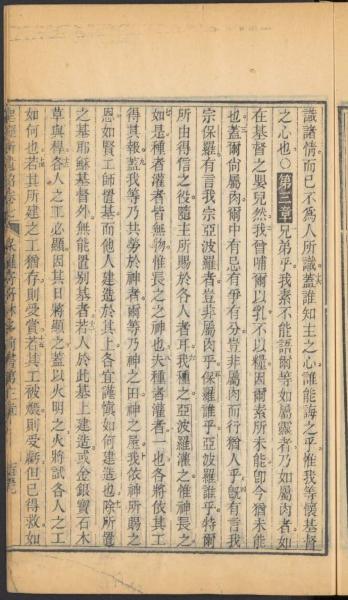 識諸情而已不為人所識蓋誰知主之心誰能誨之乎惟我等懷基督
之心也〇第三章兄弟乎我素不能語爾等如屬靈者乃如屬肉者如
在基督之嬰兒然我曾哺爾以乳不以糧因爾素所未能卽今猶未能
也蓋爾尚屬肉爾中有忌有爭有分豈非屬肉而行猶人乎旣有言我
宗保羅有言我宗亞波羅者豈非屬肉乎保羅誰乎亞波羅誰乎特爾
所由得信之役隨主所賜於各人者耳我種之亞波羅灌之惟神長之
如是種者灌者皆無物惟長之之神也夫種者灌者一也各將依其工
得其報蓋我等乃共勞於神者爾等乃神之田神之屋我依神所賜之
恩如賢工師置基而他人建造於其上各宜謹慎如何建造也除所置
之基耶穌基督外無能置別基者若人於此基上建造或金銀寶石木
草與稈各人之工必顯因其日將顯之蓋以火明之火將試各人之工
如何也若其所建之工猶存則受賞若其工被燬則受虧但已得救如